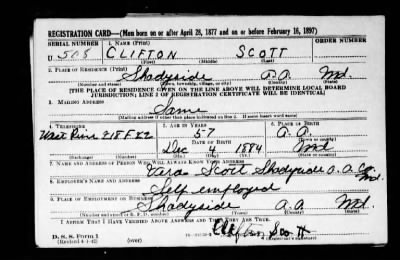 REGISTRATION CARD—(Men born on or after April 28, 1877 and on or before February 16, 1897)
SERIAL NUMBER 1. NAME (Print) ORDER NUMBER
U 508 CLIFTON SCOTT
(First) (Middle) (Last)
2. PLACE OF RESIDENCE (Print)
Shadyside A.A. Md.
(Number and street) (Town, township, village, or city) (County) (State)
[THE PLACE OF RESIDENCE GIVEN ON THE LINE ABOVE WILL DETERMINE LOCAL BOARD
JURISDICTION; LINE 2 OF REGISTRATION CERTIFICATE WILL BE IDENTICAL]
3. MAILING ADDRESS
Same
[Mailing address if other than place indicated on line 2. If same insert word same]
4. TELEPHONE 5. AGE IN YEARS 6. PLACE OF BIRTH
West River 218 F 22 57 A. A.
DATE OF BIRTH (Town or county)
Dec 4 1884 Md
(Exchange) (Number) (Mo.) (Day) (Yr.) (State or country)
7. NAME AND ADDRESS OF PERSON WHO WILL ALWAYS KNOW YOUR ADDRESS
Scott Shadyside A. A. Co. Md.
8. EMPLOYER'S NAME AND ADDRESS
Self employed
9. PLACE OF EMPLOYMENT OR BUSINESS
Shadyside A.A Md.
(Number and street or R. F. D. number) (Town) (County) (State)
I AFFIRM THAT I HAVE VERIFIED ABOVE ANSWERS AND THAT THEY ARE TRUE.
D. S. S. Form 1
(Revised 4-1-42) (over) Clifton Scott